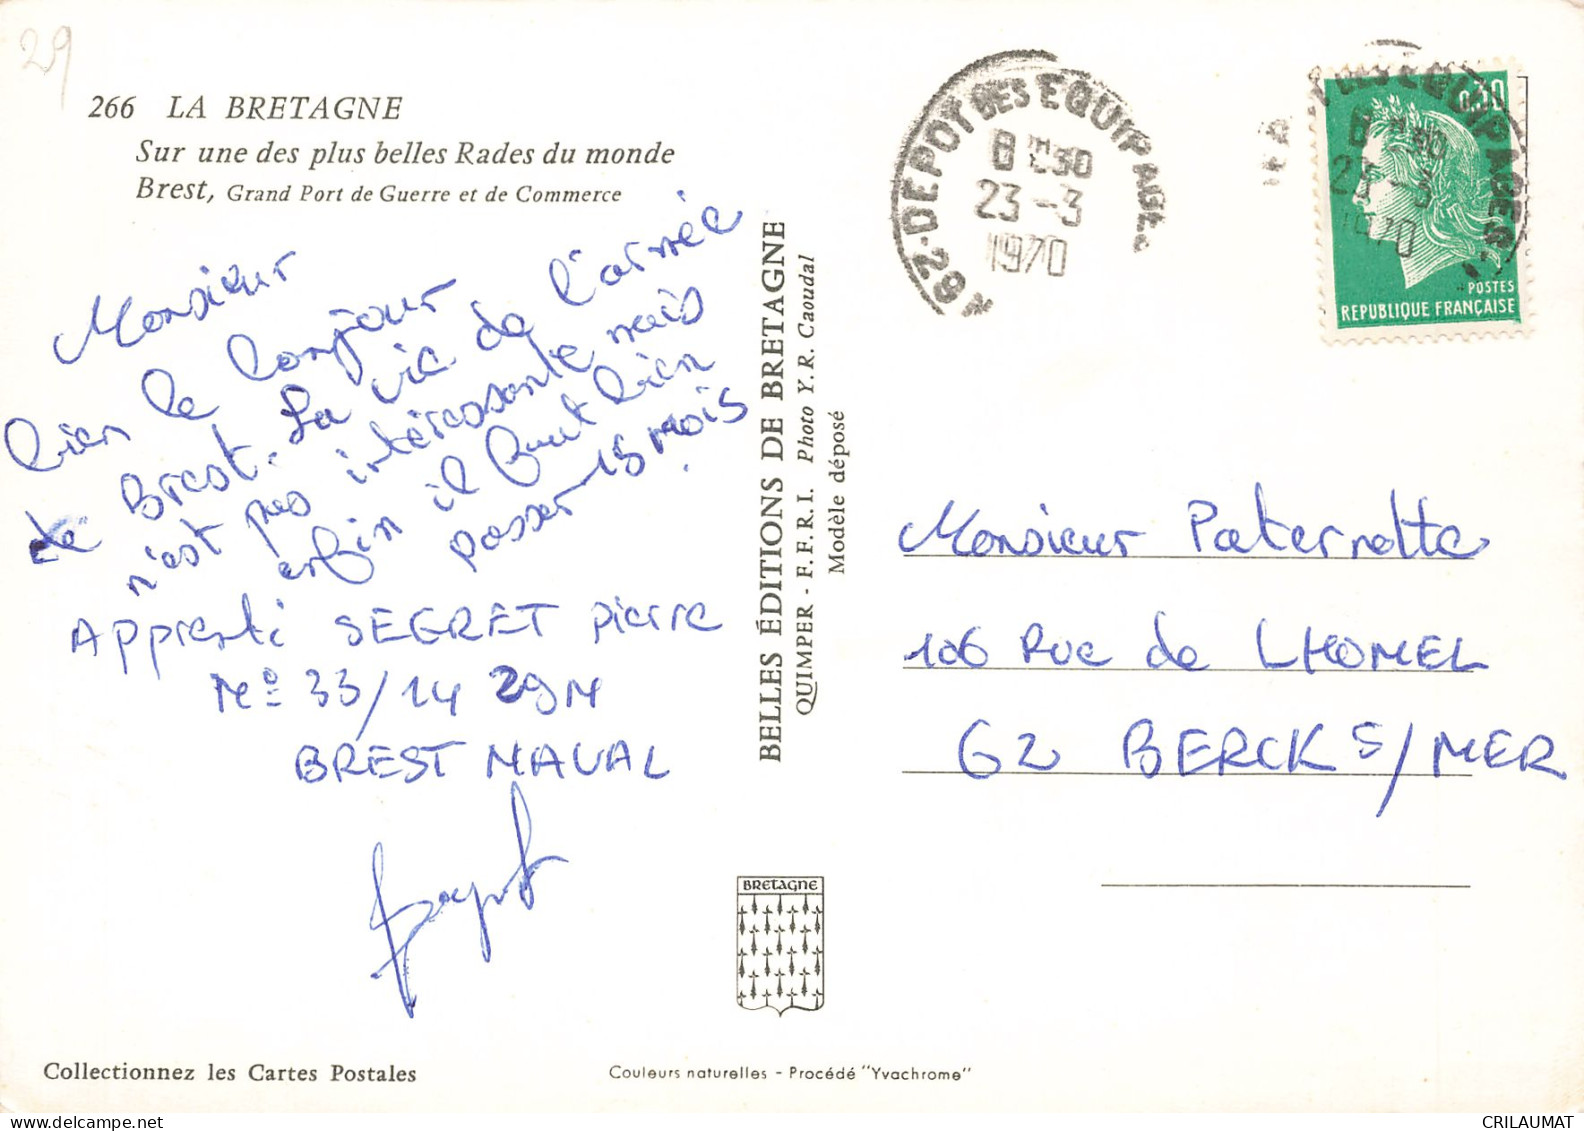 29
266 LA BRETAGNE
Sur une des plus belles Rades du monde
Brest, Grand Port de Guerre et de Commerce
Monsieur
bien le bonjour
de Brest. La vie de l'armée
n'est pas intéressante mais
enfin il faut bien
passer 15 mois
Apprenti SEGRET Pierre
N° 33/14 29M
BREST NAVAL
BELLES ÉDITIONS DE BRETAGNE
QUIMPER - F.F.R.I. Photo Y.R. Caoudal
Modèle déposé
BRETAGNE
DEPOT DES EQUIPAGES
8 H 30
23-3
1970
DES EQUIPAGES
8 H 30
23-3
1970
0,30
POSTES
REPUBLIQUE FRANÇAISE
Monsieur Paternotte
106 Rue de LHOMEL
62 BERCK S/MER
Collectionnez les Cartes Postales
Couleurs naturelles - Procédé "Yvachrome"
CRILAUMAT